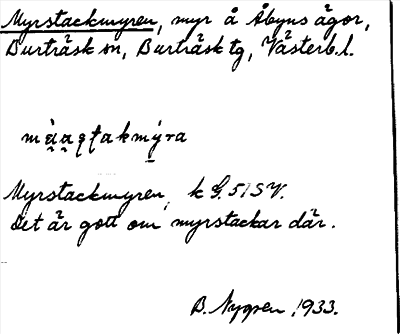 Myrstackmyren, myr å Åbyns ägor,
Burträsk sn, Burträsk tg, Västerb. l.
Myrstackmyren, k G. 51 SV.
Det är gott om myrstackar där.
B. Nygren 1933.